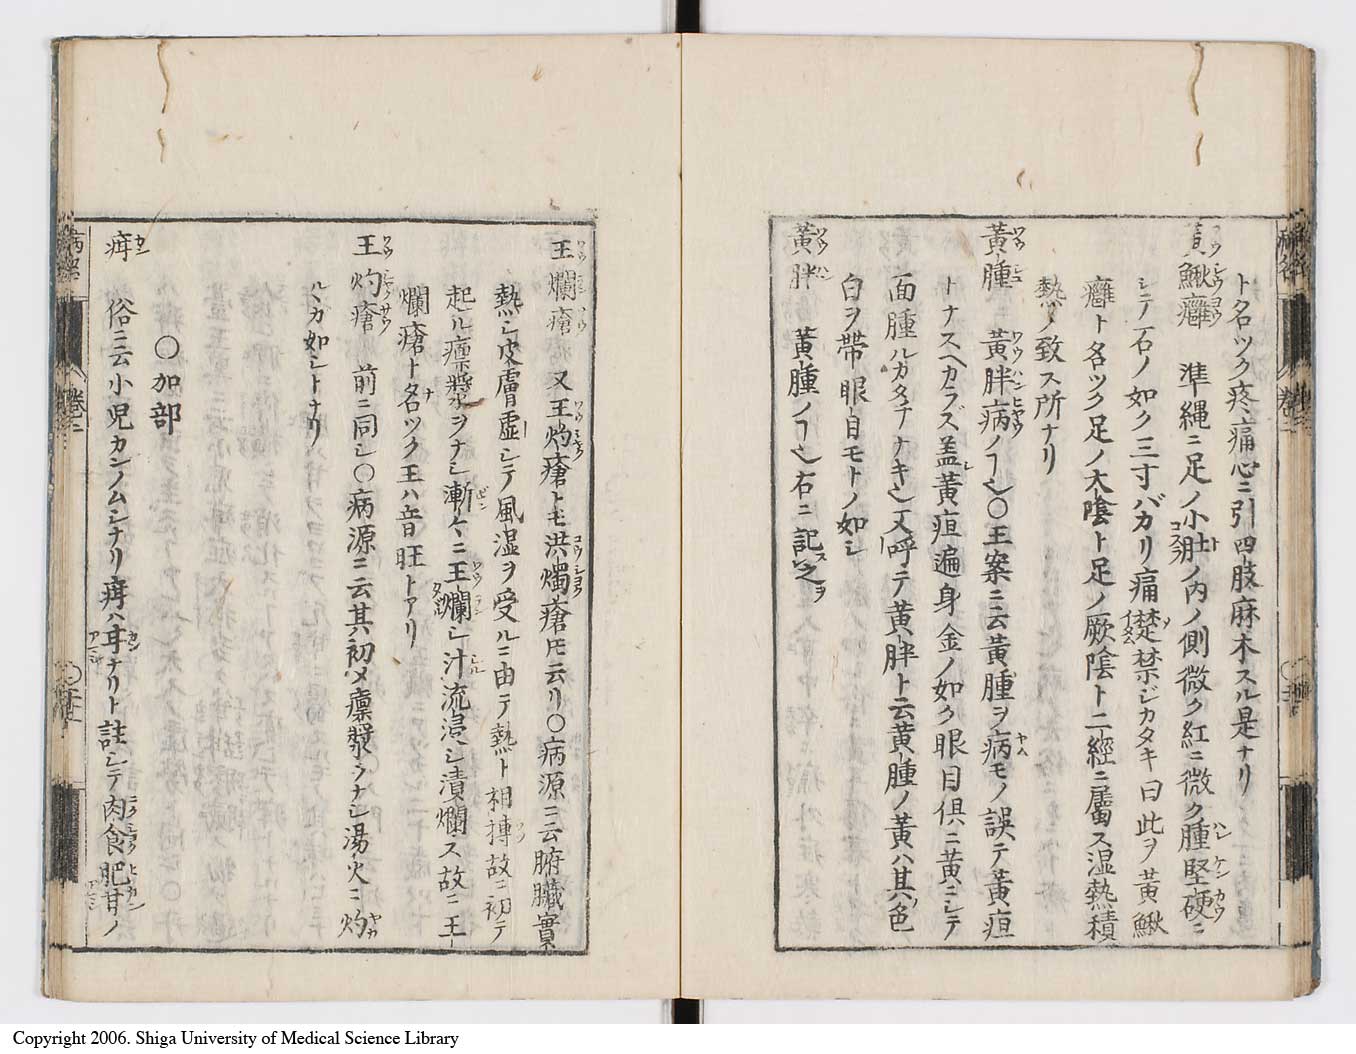 ト名ツク疼痛心ニ引四肢麻木スル是ナリ
黃鰍癰 準縄ニ足ノ小肚ノ内ノ側微ク紅ニ微ク腫堅硬ニ
シテ石ノ如ク三寸バカリ痛楚禁ジカタキ曰此ヲ黃鰍
癰ト名ツク足ノ大陰ト足ノ厥陰ト二經ニ屬ス湿熱積
熱ノ致ス所ナリ
黃腫 黃胖病ノヿ也〇王案ニ云黃腫ヲ病モノ誤テ黃疸
トナスヘカラズ盖黃疸遍身金ノ如ク眼目倶ニ黃ニシテ
面腫ルカタチナキ也又呼テ黃胖ト云黃腫ノ黃ハ其色
白ヲ帶眼目モトノ如シ
黃胖 黃腫ノヿ也右ニ記之
王爛瘡 又王灼瘡トモ洪燭瘡𪜈云リ〇病源ニ云腑臓實
熱シ皮膚虚シテ風湿ヲ受ルニ由テ熱ト相搏故ニ初テ
起ル瘭漿ヲナシ漸々ニ王爛シ汁流浸シ漬爛ス故ニ王
爛瘡ト名ツク王ハ音旺トアリ
王灼瘡 前ニ同シ〇病源ニ云其初メ瘭漿ヲナシ湯火ニ灼
ルヽカ如シトナリ
〇加部
疳 俗ニ云小児カンノムシナリ疳ハ甘ナリト註シテ肉食肥甘ノ
卷二
Copyright 2006. Shiga University of Medical Science Library